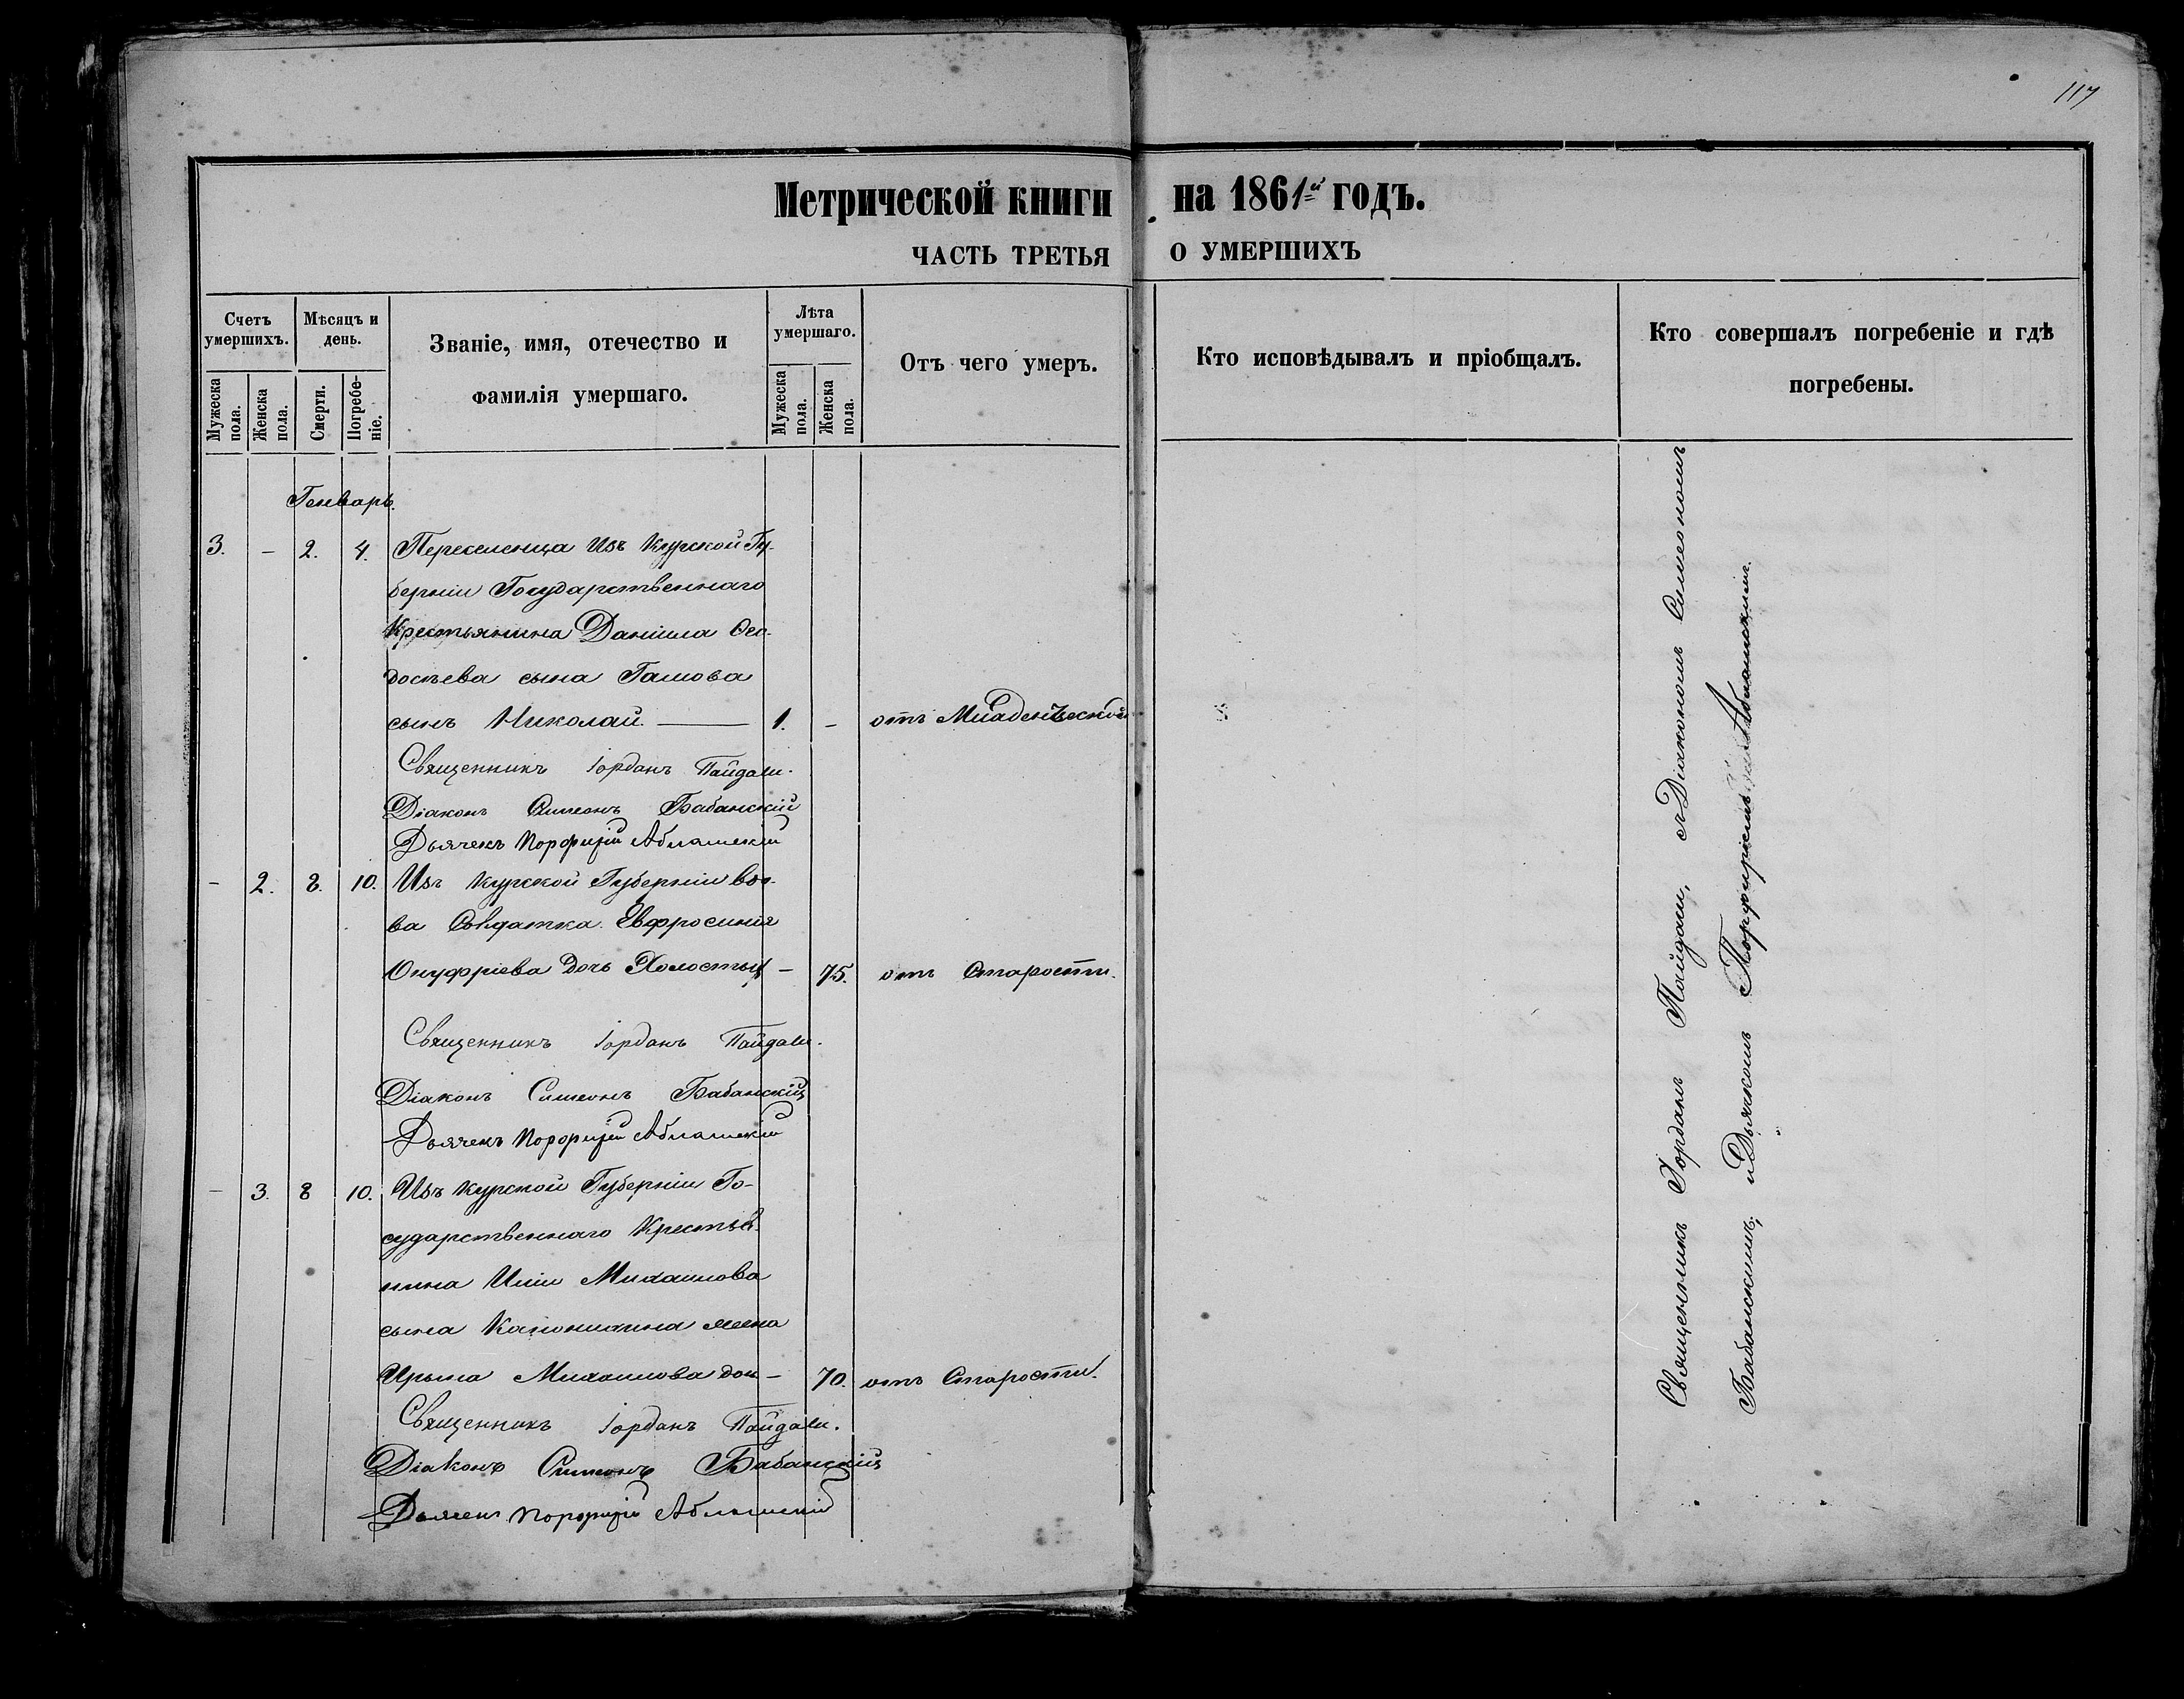 117
Метрической книги на 1861й годъ.
ЧАСТЬ ТРЕТЬЯ О УМЕРШИХЪ
Счетъ умершихъ.
Мужеска пола.
Женска пола.
Мѣсяцъ и день.
Смерти.
Погребеніе.
Званіе, имя, отечество и фамилія умершаго.
Лѣта умершаго.
Мужеска пола.
Женска пола.
Отъ чего умеръ.
Кто исповѣдывалъ и пріобщалъ.
Кто совершалъ погребеніе и гдѣ погребены.
Генварь.
3. – 2. 4. Переселенца Изъ Курской Гу-
берніи Государственнаго
Крестьянина Даніила Ѳео-
досѣева сына
сынъ Николай. — 1. – отъ Младенческой
Священникъ Іорданъ Пайдали.
Діаконъ Симеонъ Бабанскій
Дьячекъ Порфирій
– 2. 8. 10. Изъ Курской Губерніи вдо-
ва Солдатка Евфросинія
Онуфріева дочь – 75. отъ Старости.
Священникъ Іорданъ Пайдали.
Діаконъ Симеонъ Бабанскій
Дьячекъ Порфирій
– 3. 8 10. Изъ Курской Губерніи Го-
сударственнаго Крестья-
нина Иліи Михаилова
сына жена
Ирына Михаилова доч – 70. отъ Старости.
Священникъ Іорданъ Пайдали.
Діаконъ Симеонъ Бабанскій
Дьячекъ Порфирій
Священникъ Іорданъ Пайдали, съ Діакономъ Симеономъ
Бабанскимъ, и Дьячкомъ Порфиріемъ